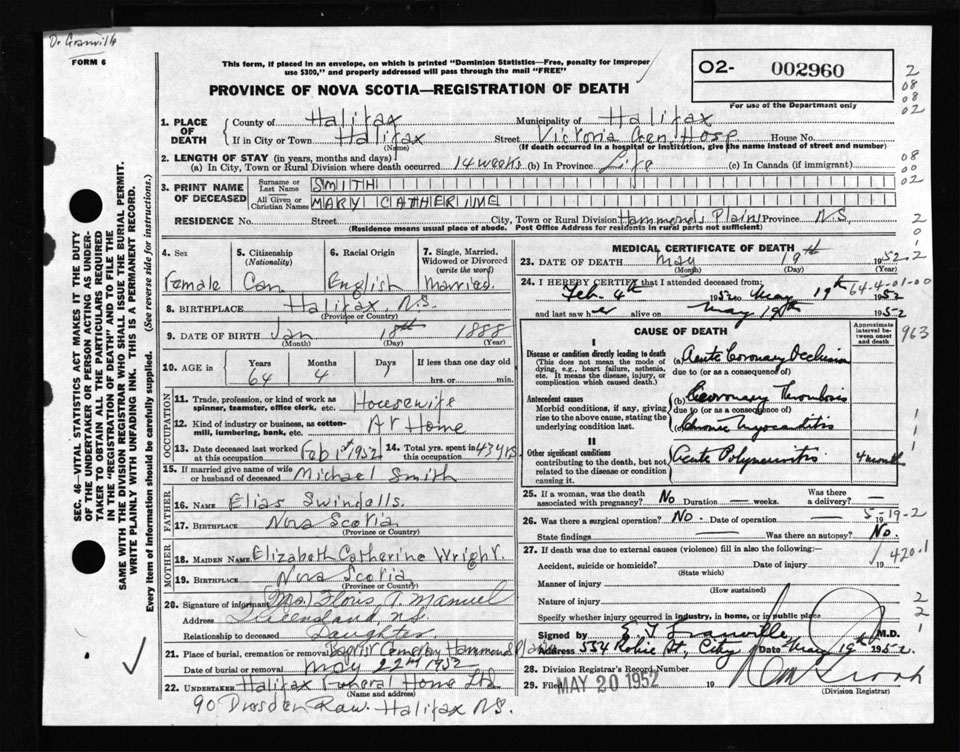 Dr Granville
FORM 6
This form, if placed in an envelope, on which is printed "Dominion Statistics—Free, penalty for improper
use $300," and properly addressed will pass through the mail "FREE"
PROVINCE OF NOVA SCOTIA—REGISTRATION OF DEATH
O2- 002960
For use of the Department only
2
08
08
02
1. PLACE OF DEATH
County of Halifax Municipality of Halifax
If in City or Town Halifax Street Victoria Gen. Hosp House No.
(Name) (If death occurred in a hospital or institution, give the name instead of street and number)
2. LENGTH OF STAY (in years, months and days)
(a) In City, Town or Rural Division where death occurred 14 weeks (b) In Province Life (c) In Canada (if immigrant)
08
00
02
3. PRINT NAME OF DECEASED
Surname or Last Name SMITH
All Given or Christian Names MARY CATHERINE
RESIDENCE No. Street City, Town or Rural Division Hammonds Plain Province N.S.
(Residence means usual place of abode. Post Office Address for residents in rural parts not sufficient)
2
0
1
2
SEC. 46—VITAL STATISTICS ACT MAKES IT THE DUTY
OF THE UNDERTAKER OR PERSON ACTING AS UNDER-
TAKER TO OBTAIN ALL THE PARTICULARS REQUIRED
IN THE "REGISTRATION OF DEATH" AND TO FILE THE
SAME WITH THE DIVISION REGISTRAR WHO SHALL ISSUE THE BURIAL PERMIT.
WRITE PLAINLY WITH UNFADING INK. THIS IS A PERMANENT RECORD.
Every item of information should be carefully supplied. (See reverse side for instructions.)
4. Sex 5. Citizenship (Nationality) 6. Racial Origin 7. Single, Married, Widowed or Divorced (write the word)
Female Can English Married.
8. BIRTHPLACE Halifax, N.S.
(Province or Country)
9. DATE OF BIRTH Jan 18th 1888
(Month) (Day) (Year)
10. AGE in Years Months Days If less than one day old
64 4 hrs. or min.
OCCUPATION
11. Trade, profession, or kind of work as
spinner, teamster, office clerk, etc. Housewife
12. Kind of industry or business, as cotton-
mill, lumbering, bank, etc. At Home
13. Date deceased last worked at this occupation Feb 1st 1952 14. Total yrs. spent in this occupation 43 yrs
15. If married give name of wife
or husband of deceased Michael Smith
FATHER
16. NAME Elias Swindells.
17. BIRTHPLACE Nova Scotia
(Province or Country)
MOTHER
18. MAIDEN NAME Elizabeth Catherine Wright.
19. BIRTHPLACE Nova Scotia
(Province or Country)
20. Signature of informant (Mrs) Floris A. Manuel
Address Queensland, N.S.
Relationship to deceased Daughter.
21. Place of burial, cremation or removal Baptist Cemetery Hammonds Plain
Date of burial or removal May 22nd 1952
22. UNDERTAKER Halifax Funeral Home Ltd
(Name and address)
90 Dresden Row. Halifax N.S.
MEDICAL CERTIFICATE OF DEATH
23. DATE OF DEATH May 19th 1952
(Month) (Day) (Year)
64-4-01-00
24. I HEREBY CERTIFY that I attended deceased from:
Feb. 4th 1952 to May 19th 1952
and last saw her alive on May 19th 1952
CAUSE OF DEATH
Approximate interval between onset and death
963
I
Disease or condition directly leading to death (a) Acute Coronary Occlusion
(This does not mean the mode of
dying, e.g., heart failure, asthenia,
etc. It means the disease, injury, or
complication which caused death.)
due to (or as a consequence of)
Antecedent causes (b) Coronary Thrombosis
Morbid conditions, if any, giving
rise to the above cause, stating the
underlying condition last.
due to (or as a consequence of)
(c) Chronic Myocarditis
1
1
1
II
Other significant conditions
contributing to the death, but not
related to the disease or condition
causing it.
Acute Polyneuritis 4 month
25. If a woman, was the death
associated with pregnancy? No Duration — weeks. Was there a delivery? —
26. Was there a surgical operation? No. Date of operation 19
5-19-2
State findings Was there an autopsy? No.
27. If death was due to external causes (violence) fill in also the following:—
420.1
Accident, suicide or homicide? Date of injury 19
(State which)
Manner of injury
(How sustained)
Nature of injury
2
2
1
Specify whether injury occurred in industry, in home, or in public place
Signed by E. F. Granville M.D.
Address 334 Robie St, City Date May 19th 1952.
28. Division Registrar's Record Number
29. Filed MAY 20 1952 19
(Division Registrar)